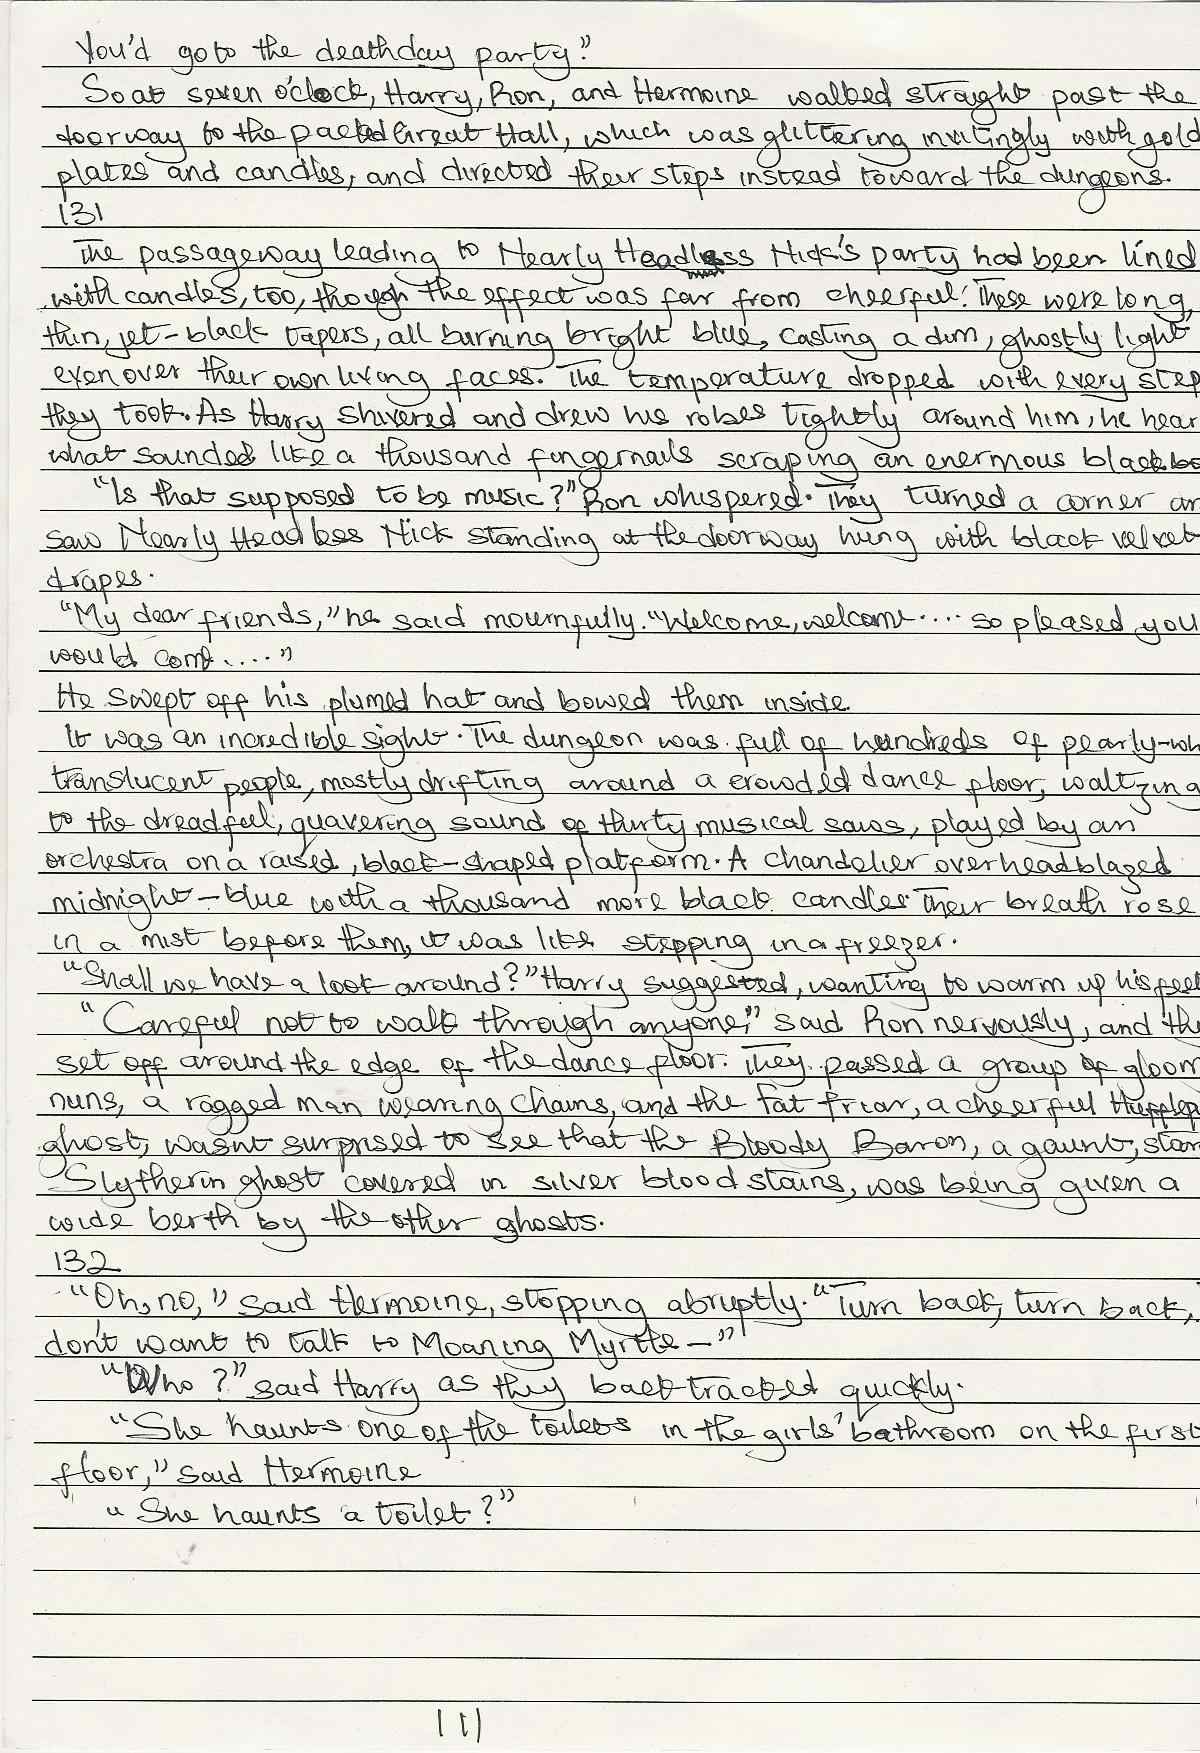 You'd go to the deathday party."
So at seven o'clock, Harry, Ron, and Hermoine walked straight past the
doorway to the packed Great Hall, which was glittering invitingly with gold
plates and candles, and directed their steps instead toward the dungeons.
131
The passageway leading to Nearly Headless Nick's party had been lined
with candles, too, though the effect was far from cheerful: These were long,
thin, jet-black tapers, all burning bright blue, casting a dim, ghostly light
even over their own living faces. The temperature dropped with every step
they took. As Harry shivered and drew his robes tightly around him, he hear
what sounded like a thousand fingernails scraping an enermous blackbo
"Is that supposed to be music?" Ron whispered. They turned a corner an
saw Nearly Headless Nick standing at the doorway hung with black velvet
drapes.
"My dear friends," he said mournfully. "Welcome, welcome.... so pleased you
would come...."
He swept off his plumed hat and bowed them inside.
It was an incredible sight. The dungeon was full of hundreds of pearly-wh
translucent people, mostly drifting around a crowded dance floor, waltzing
to the dreadful, quavering sound of thirty musical saws, played by an
orchestra on a raised, black-shaped platform. A chandelier overhead blazed
midnight-blue with a thousand more black candles. Their breath rose
in a mist before them, it was like stepping in a freezer.
"Shall we have a look around?" Harry suggested, wanting to warm up his feet
"Careful not to walk through anyone," said Ron nervously, and the
set off around the edge of the dance floor. They passed a group of gloom
nuns, a ragged man wearing chains, and the Fat Friar, a cheerful Hufflep
ghost, wasnt surprised to see that the Bloody Baron, a gaunt, star
Slytherin ghost covered in silver bloodstains, was being given a
wide berth by the other ghosts.
132
"Oh, no," said Hermoine, stopping abruptly. "Turn back, turn back, I
don't want to talk to Moaning Myrtle-"
"Who?" said Harry as they backtracked quickly.
"She haunts one of the toilets in the girls' bathroom on the first
floor," said Hermoine
"She haunts a toilet?"
111